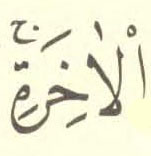 الْاٰخِرَةِ ۚ